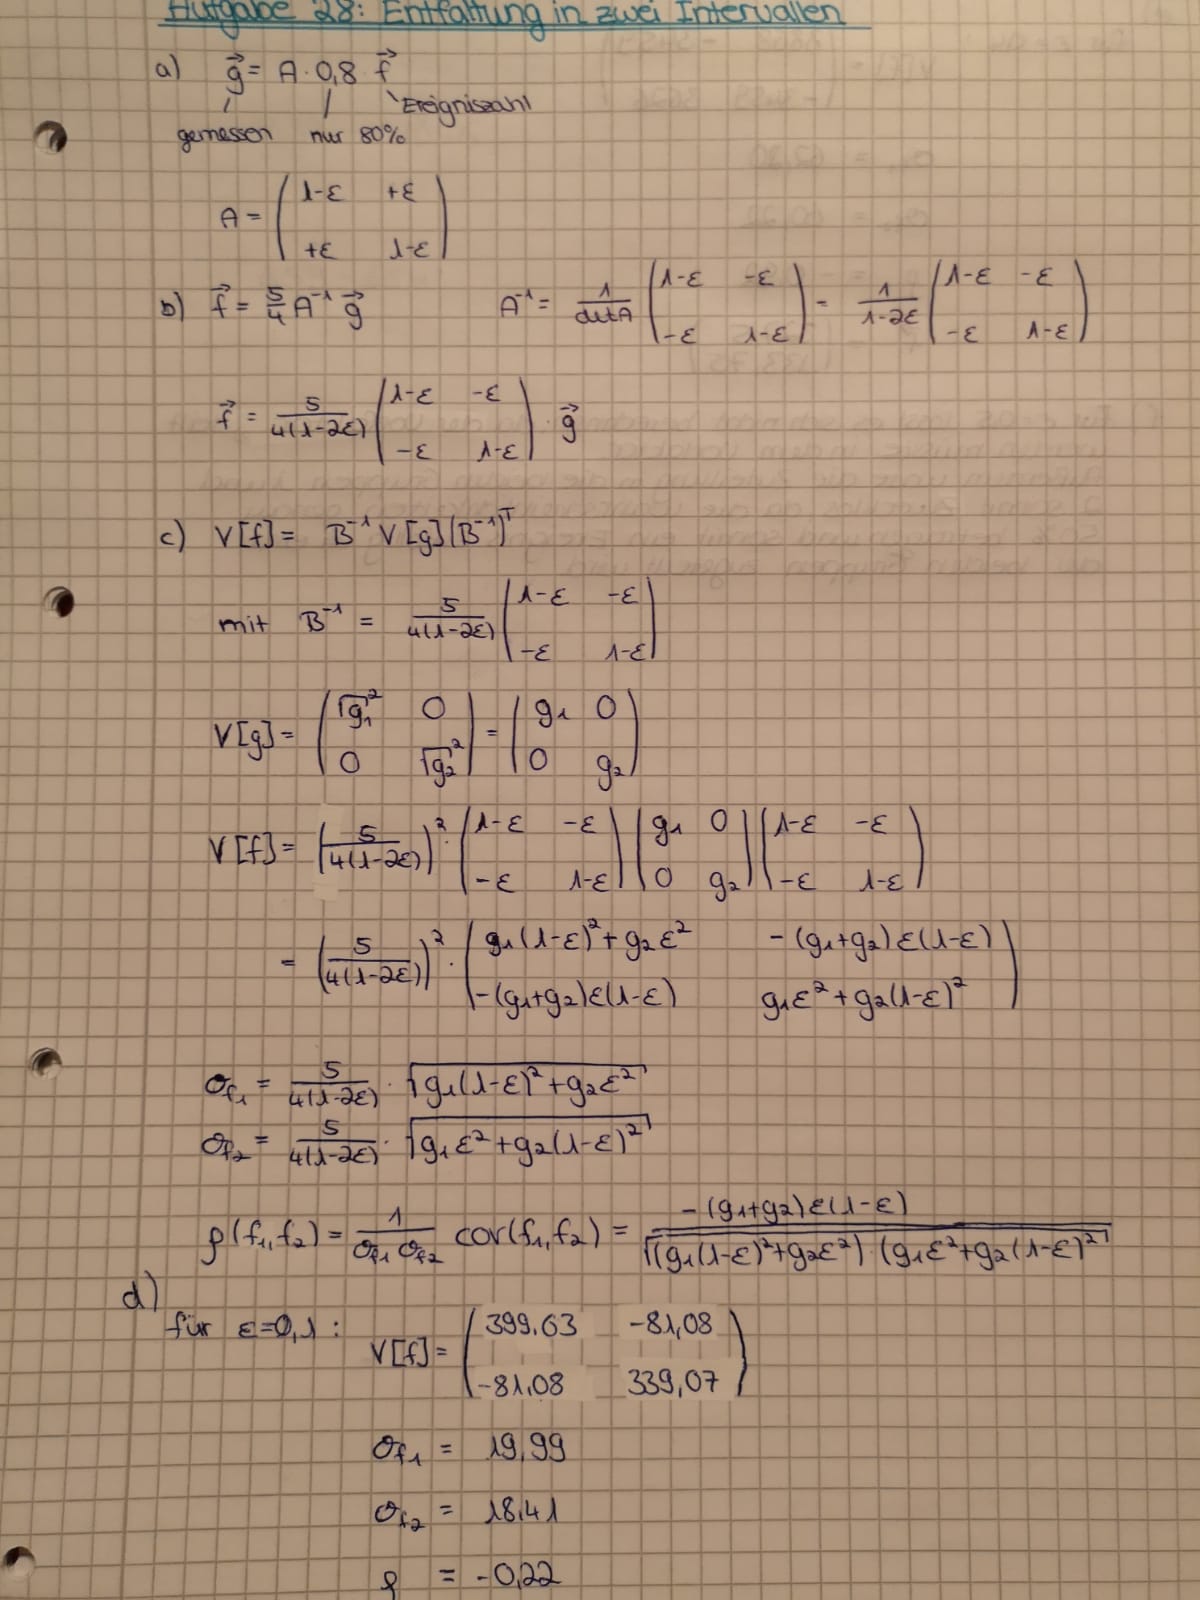 Aufgabe 28: Entfaltung in zwei Intervallen
a) g⃗ = A · 0,8 f⃗
gemessen nur 80% Ereigniszahl
A = ( 1-ε +ε
+ε 1-ε )
b) f⃗ = 5/4 A⁻¹ g⃗ A⁻¹ = 1/detA ( 1-ε -ε
-ε 1-ε ) = 1/(1-2ε) ( 1-ε -ε
-ε 1-ε )
f⃗ = 5/(4(1-2ε)) ( 1-ε -ε
-ε 1-ε ) · g⃗
c) V[f] = B⁻¹ V[g] (B⁻¹)ᵀ
mit B⁻¹ = 5/(4(1-2ε)) ( 1-ε -ε
-ε 1-ε )
V[g] = ( √g₁² 0
0 √g₂² ) = ( g₁ 0
0 g₂ )
V[f] = (5/(4(1-2ε)))² · ( 1-ε -ε
-ε 1-ε ) ( g₁ 0
0 g₂ ) ( 1-ε -ε
-ε 1-ε )
= (5/(4(1-2ε)))² · ( g₁(1-ε)²+g₂ε² -(g₁+g₂)ε(1-ε)
-(g₁+g₂)ε(1-ε) g₁ε²+g₂(1-ε)² )
σf₁ = 5/(4(1-2ε)) · √(g₁(1-ε)²+g₂ε²)
σf₂ = 5/(4(1-2ε)) · √(g₁ε²+g₂(1-ε)²)
ρ(f₁,f₂) = 1/(σf₁ σf₂) cov(f₁,f₂) = -(g₁+g₂)ε(1-ε) / √((g₁(1-ε)²+g₂ε²)·(g₁ε²+g₂(1-ε)²)
d)
für ε=0,1: V[f] = ( 399,63 -81,08
-81,08 339,07 )
σf₁ = 19,99
σf₂ = 18,41
ρ = -0,22